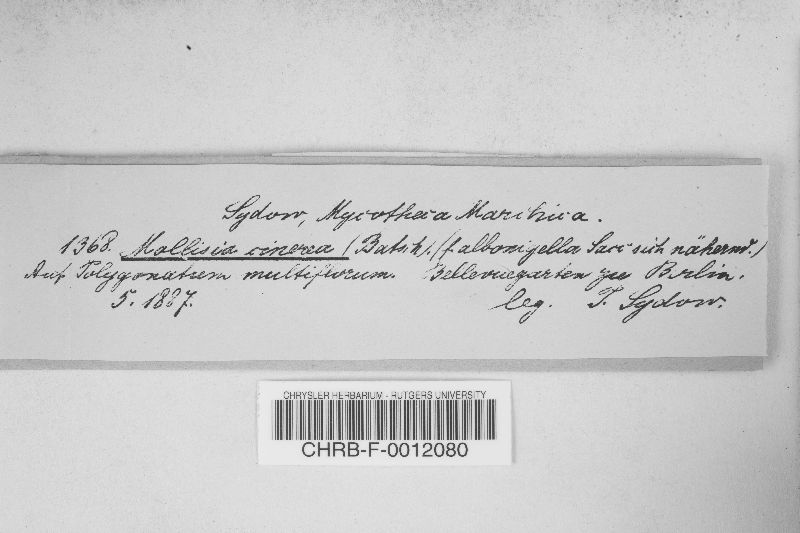 Sydow, Mycotheca Marchica.
1368. Mollisia cinerea (Batsch). (f. albonigella Sacc sich nähernd.)
Auf Polygonatum multiflorum. Bellevuegarten zu Berlin.
5. 1887. leg. P. Sydow.
CHRYSLER HERBARIUM - RUTGERS UNIVERSITY
CHRB-F-0012080